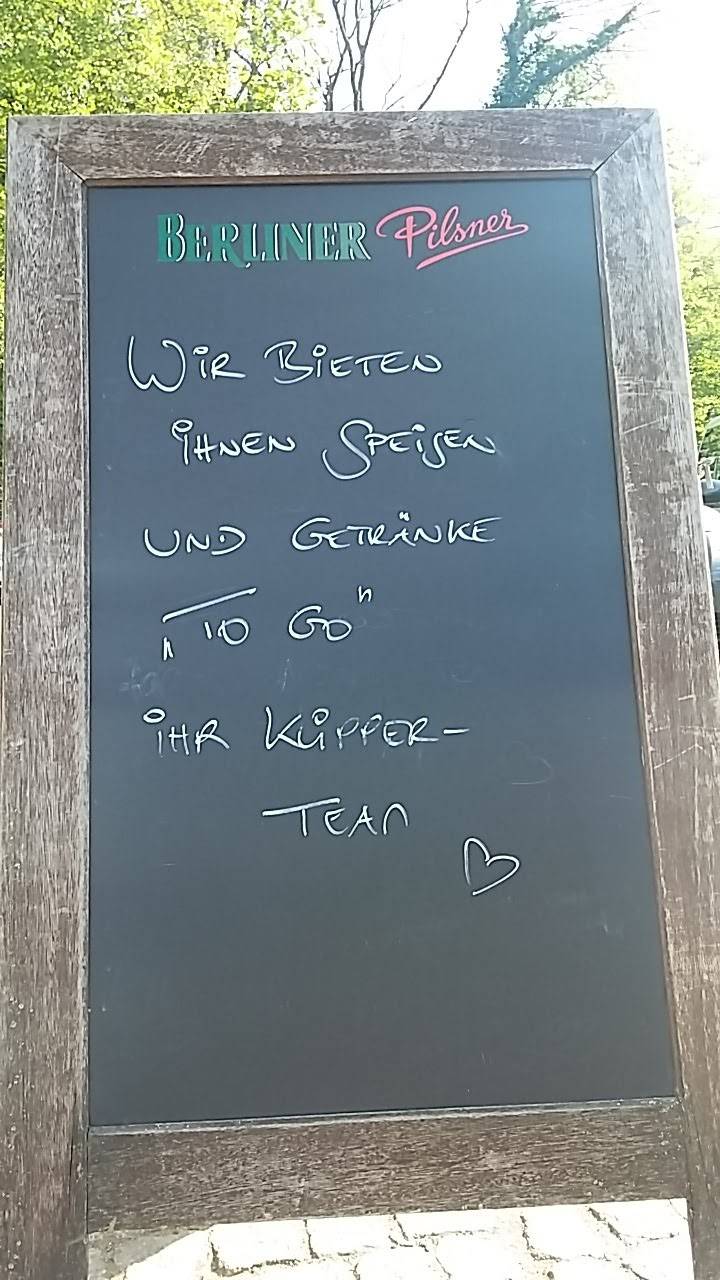 BERLINER Pilsner
WiR BiETEN
iHNEN SPEiSEN
UND GETRÄNKE
„TO GO"
iHR KLiPPER-
TEAM